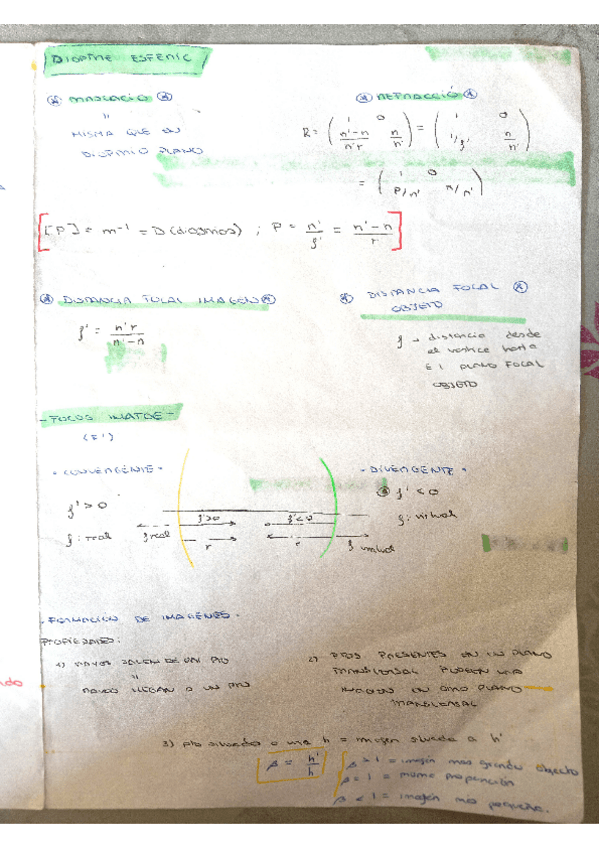 DIOPTRE ESFERIC
TRASLACIÓ
"
MISMA QUE EN
DIOPTRIO PLANO
REFRACCIÓ
R = ( 1 0 ; n'-n/n'r n/n' ) = ( 1 0 ; 1/f' n/n' )
= ( 1 0 ; P/n' n/n' )
[P] = m⁻¹ = D (dioptrias) ; P = n'/f' = n'-n/r
DISTANCIA FOCAL IMAGEN
f' = n'r/n'-n
DISTANCIA FOCAL
OBJETO
f → distancia desde
el vertice hasta
el PLANO FOCAL
OBJETO
- FOCUS IMATGE -
(F')
• CONVERGENTE •
f' > 0
f : real
f real
f' > 0
r
f' < 0
r
f virtual
• DIVERGENTE •
f' < 0
f : virtual
• FORMACIÓN DE IMAGENES •
PROPIEDADES:
1) RAYOS SALEN DE UN PTO
"
RAYOS LLEGAN A UN PTO
2) PTOS PRESENTES EN UN PLANO
TRANSVERSAL PUEDEN UNA
IMAGEN EN OTRO PLANO
TRANSVERSAL
3) pto situado a una h = imagen situada a h'
β = h'/h
β > 1 = imagen mas grande objecto
β = 1 = misma proporción
β < 1 = imagen mas pequeña.